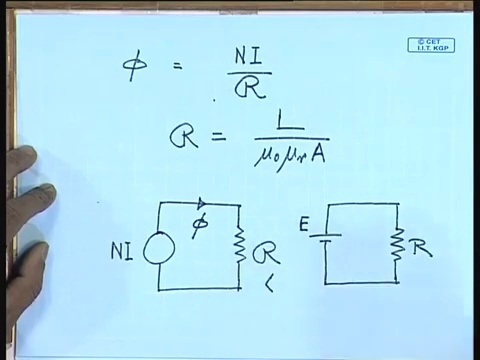 © CET
I.I.T. KGP
φ = NI / R
R = L / μ₀ μᵣ A
φ
NI
R
E
R